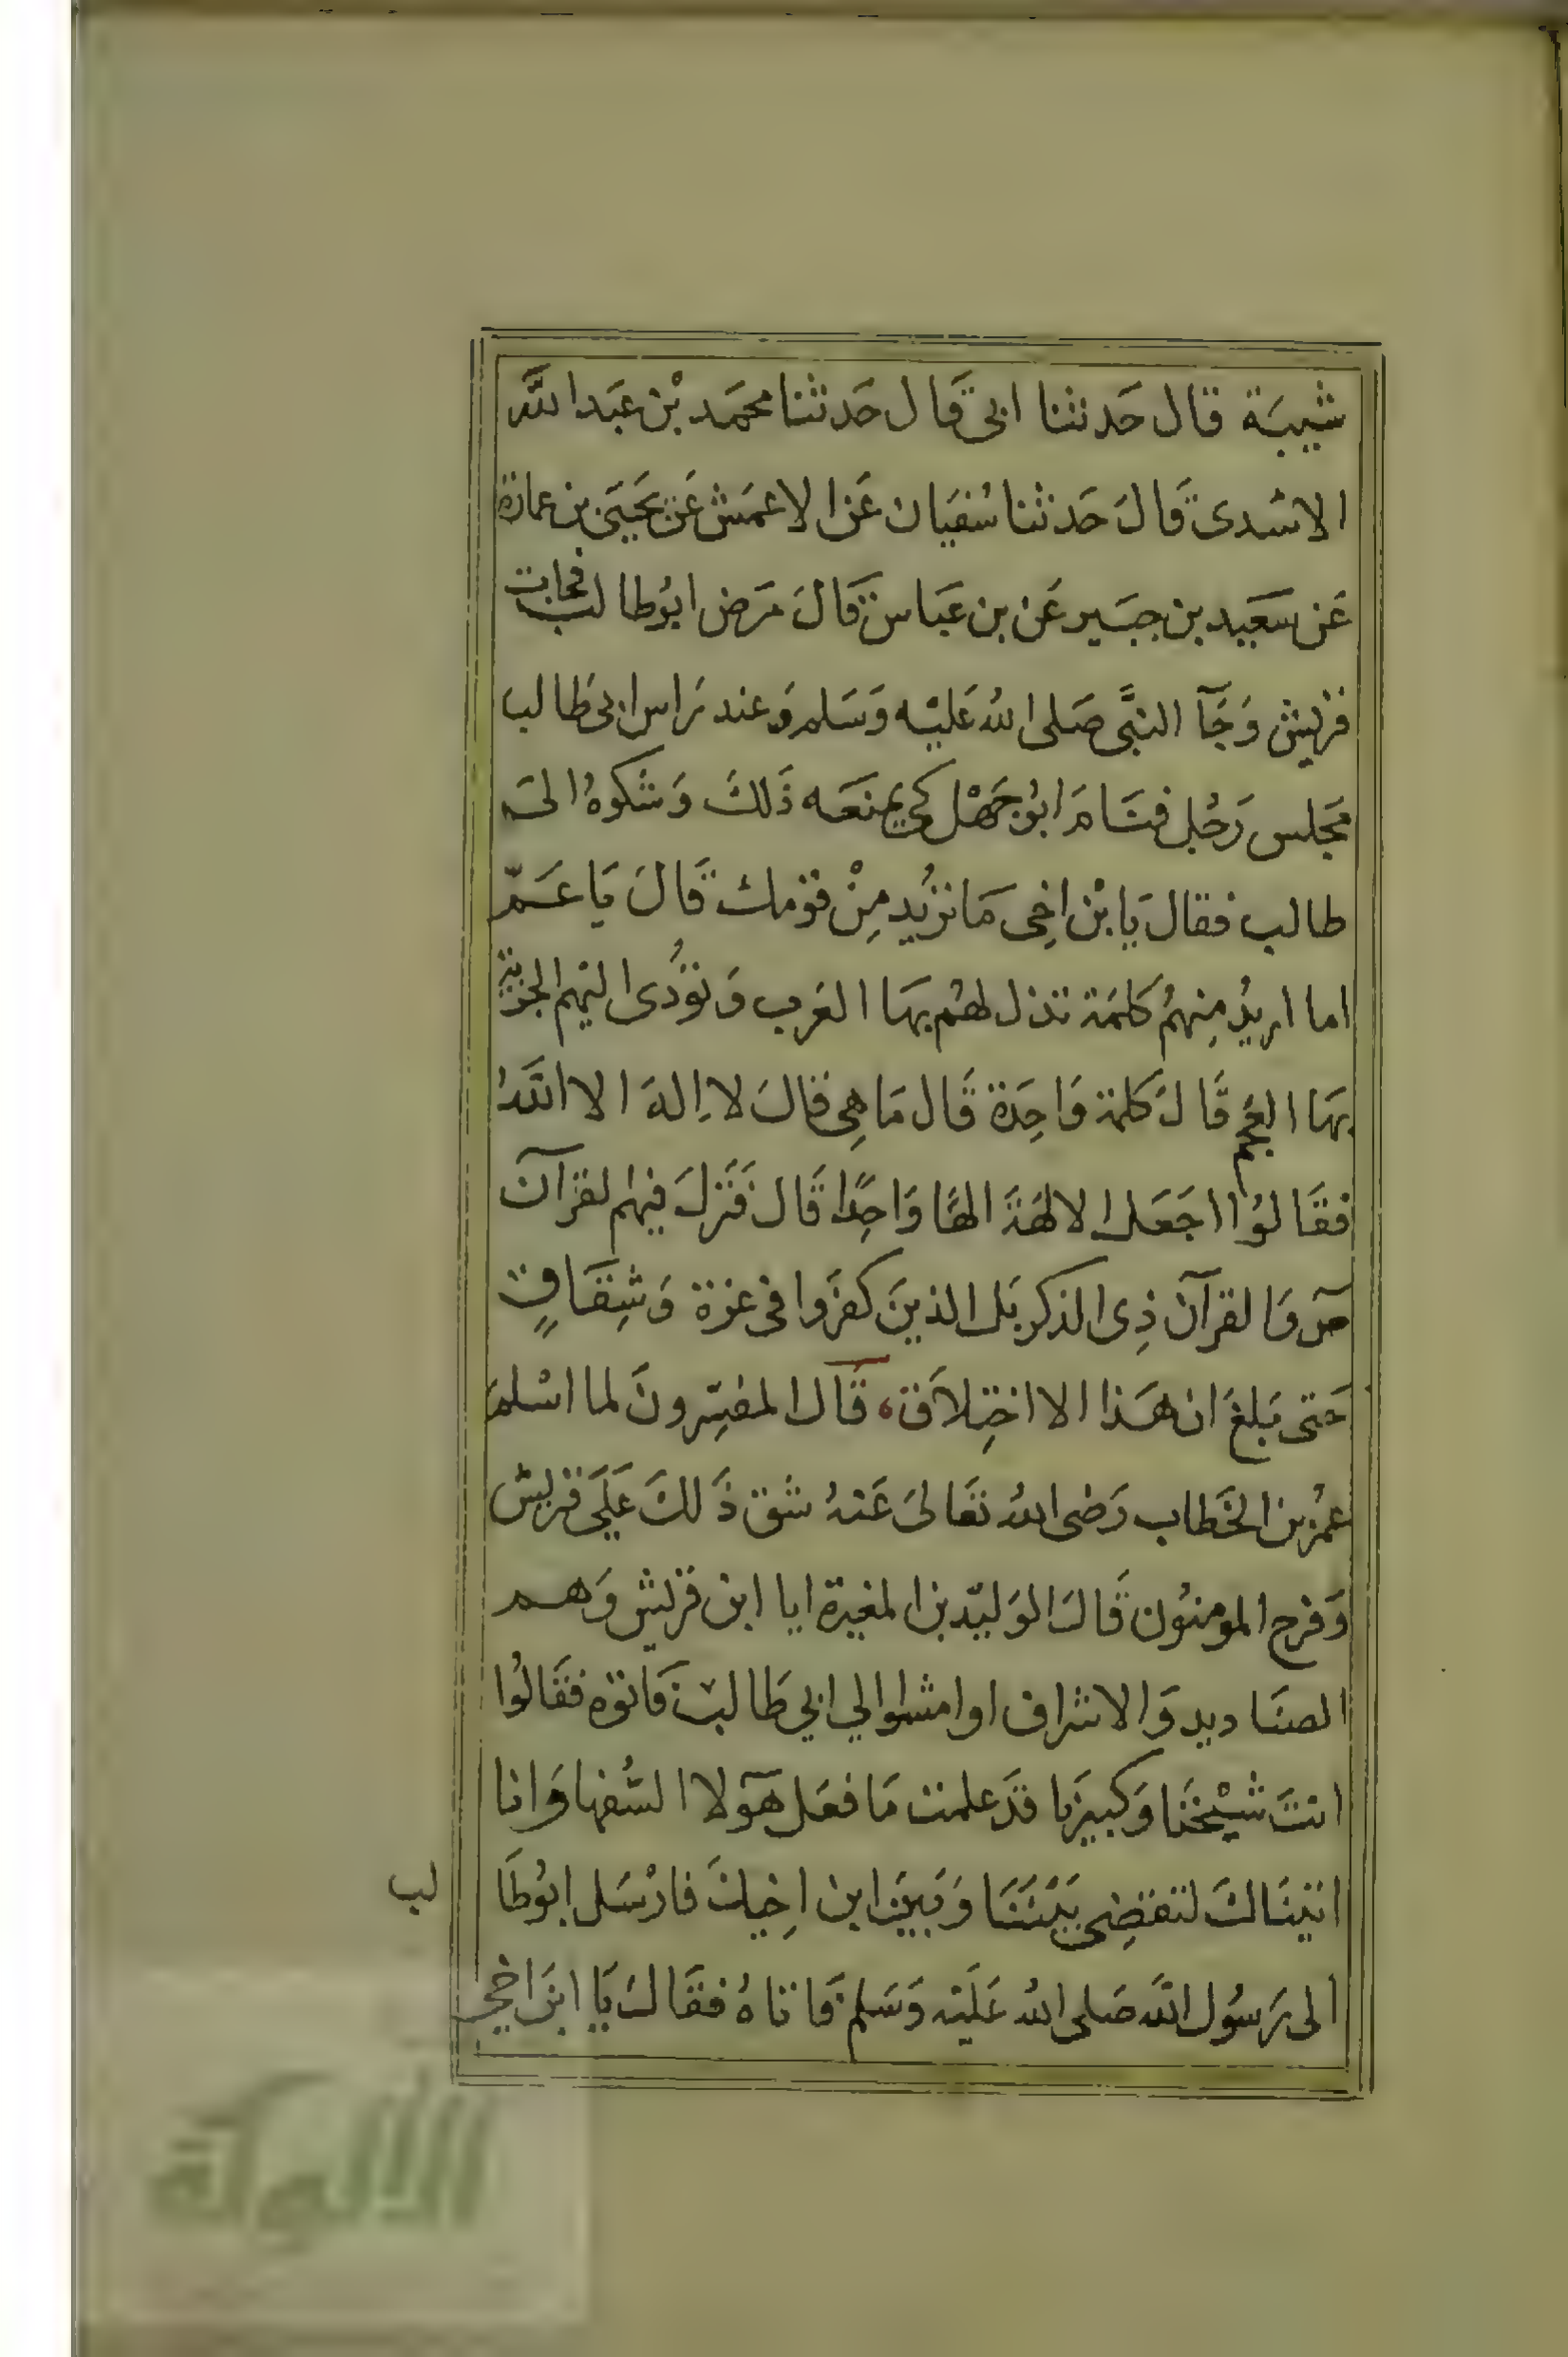 شيبَة قال حَدثنا ابى قَال حَدثنا محمَد بْن عَبَد الله
الاسَدى قَالَ حَدثنا سُفيَان عَن الاعمَش عَن يَحيَى بن عمارة
عَن سَعَيد بن جبَير عَن بن عَبَاس قَالَ مَرَض ابوُطالب فجات
قريش وَجَآ النبَّى صَلى اللهُ عَليْه وَسَلم وَعند رَاس ابى طَالب
مَجلس رَجُل فقَامَ ابوُ جَهْل كى يمنعَه ذَلكَ وَشكوهُ الىَ
طالب فقال يَا بْن اخِى مَا تريُد مِنْ قومك قَالَ يَا عَمّ
اما اريدُ مِنهمُ كلمَة تذل لهُم بهَا العَرب وَتؤُدى اليْهم الجزية
بهَا العجم قَالَ كلمة وَاحِدَة قَال مَا هِى قالَ لا اِلهَ الا اللهُ
فقَالوُا اجَعَل الالهَةَ الهًا وَاحِدًا قَال فَنَزلَ فيهم لقرآن
صٓ وَالقرآن ذِى الذكر بَل الذينَ كفرَوا فى عزة وَشِقَاقٍ
حَتى بَلغَ ان هَذا الا اختِلاَق، قَالَ المفسِّرونَ لما اسْلمَ
عمُر بن الخَطاب رَضى اللهُ تعَالىَ عَنهُ شق ذَلكَ عَلَى قريش
وَفرح المومنوُن قَالَ الوَليّد بن المغيرة ايا ابن قريش وَهم
الصنَاديد وَالاشراف اوامشوا الي ابي طَالب فَاتوَه فقَالوُا
انتَ شيْخنَا وَكبيرَنا قدَ علمت مَا فعَل هَٓولا السُّفهَا وَانا
اتينَاكَ لتقضِى بَيْننَا وَبَينَ ابن اخِيكَ فارْسَل ابوُطَا
لب
الى رَسوُل الله صَلى اللهُ عَليَه وَسَلم فَاتاهُ فقَالَ يَا ابنَ اخى
الألوكة